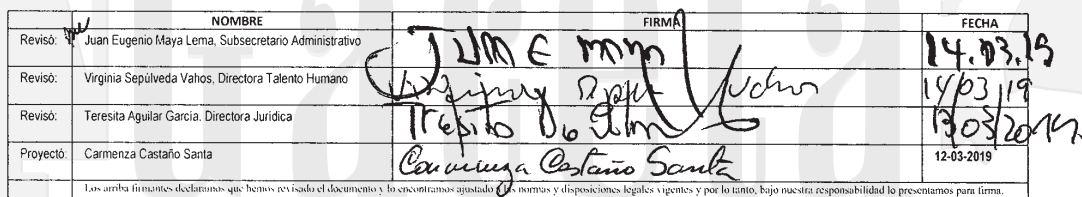 NOMBRE FIRMA FECHA
Revisó: Juan Eugenio Maya Lema, Subsecretario Administrativo 14.03.19
Revisó: Virginia Sepúlveda Vahos, Directora Talento Humano 14/03/19
Revisó: Teresita Aguilar García. Directora Jurídica 13/03/2019
Proyectó: Carmenza Castaño Santa Carmenza Castaño Santa 12-03-2019
Los arriba firmantes declaramos que hemos revisado el documento y lo encontramos ajustado a las normas y disposiciones legales vigentes y por lo tanto, bajo nuestra responsabilidad lo presentamos para firma.